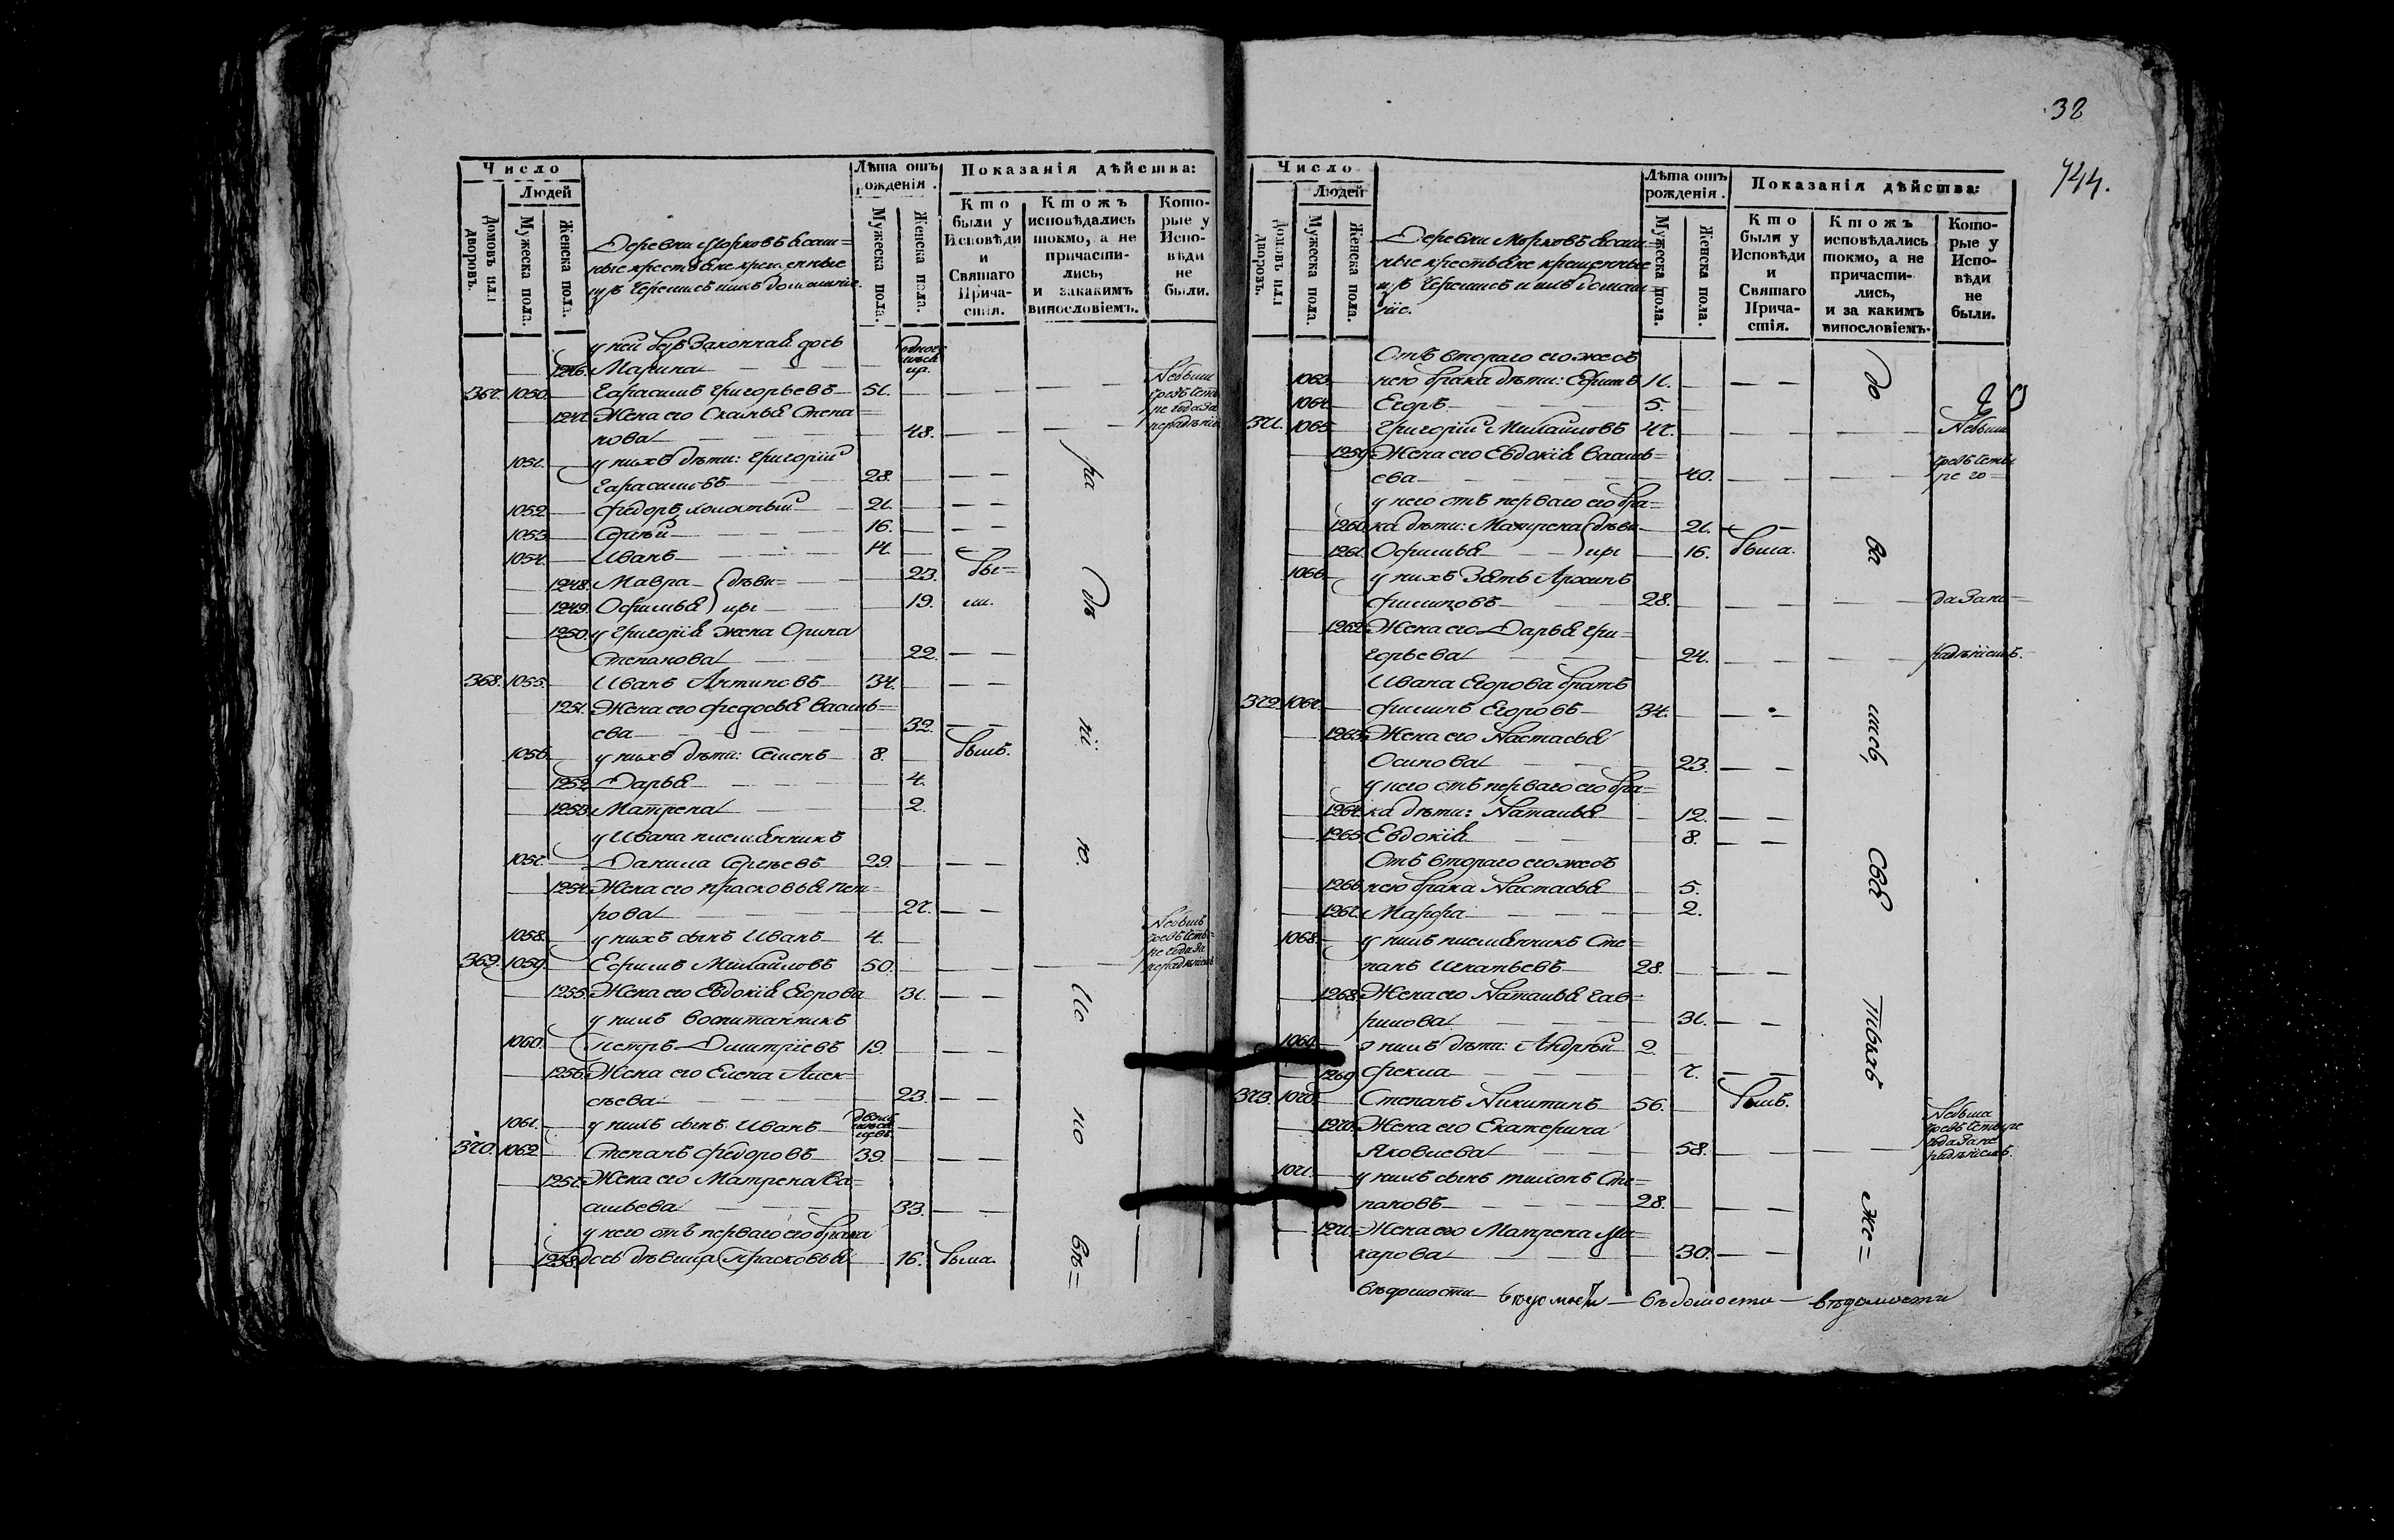 Число
Людей
Домовъ или дворовъ.
Мужеска пола.
Женска пола.
Деревни Морковъ ясаш=
ные крестьяне крещенные
изъ Черемисъ и ихъ домашнiе.
Лѣта отъ рожденiя.
Мужеска пола.
Женска пола.
Показанiя дѣйства:
Кто были у Исповѣди и Святаго Причастiя.
Ктожъ исповѣдались токмо, а не причастились, и закакимъ винословiемъ.
Которые у Исповѣди не были.
у ней беззаконная дочь
1246. Марина
367. 1050. Гарасимъ Григорьевъ 51.
1247. Жена его Степа=
нова 48.
1051. у нихъ дѣти: Григорiй
Гарасимовъ 28.
1052. Федоръ холостый 21.
1053. Сергѣй 16.
1054. Иванъ 14.
1248. Мавра дѣви= 23. бы=
1249. Офимья цы 19. ли.
1250. у Григорiя жена Орина
Степанова 22.
368. 1055. Иванъ Антиповъ 34.
1251. Жена его Федосья Василь=
ева 32.
1056. у нихъ дѣти: Семенъ 8. былъ.
1252. Дарья 4.
1253. Матрена 2.
у Ивана племянникъ
1057. Данила Сергѣевъ 29.
1254. Жена его Прасковья Пет=
рова 27.
1058. у нихъ сынъ Иванъ 4.
369. 1059. Ефимъ Михайловъ 50.
1255. Жена его Евдокiя Егорова 31.
у нихъ воспитанникъ
1060. Петръ Дмитрiевъ 19.
1256. Жена его Елена Алек=
сѣева 23.
1061. у нихъ сынъ Иванъ
370. 1062. Степанъ Федоровъ 39.
1257. Жена его Матрена Ва=
сильева 33.
у него отъ перваго его брака
1258. дочь дѣвица Прасковья 16. была.
32
744.
Число
Людей
Домовъ или дворовъ.
Мужеска пола.
Женска пола.
Деревни Морковъ ясаш=
ные крестьяне крещенные
изъ Черемисъ и ихъ домаш=
нiе.
Лѣта отъ рожденiя.
Мужеска пола.
Женска пола.
Показанiя дѣйства:
Кто были у Исповѣди и Святаго Причастiя.
Ктожъ исповѣдались токмо, а не причастились, и за какимъ винословiемъ.
Которые у Исповѣди не были.
Отъ втораго его же съ
1063. нею брака дѣти: Ефимъ 11.
1064. Егоръ 5.
371. 1065. Григорiй Михайловъ 47.
1259. Жена его Евдокiя Василь=
ева 40.
у него отъ перваго его бра=
1260. ка дѣти: Матрена дѣви 21.
1261. Офимья цы 16. была.
1066. у нихъ зять Архипъ
Филиповъ 28.
1262. Жена его Дарья Гри=
горьева 24.
Ивана Егорова братъ
372. 1067. Филипъ Егоровъ 34.
1263. Жена его Настасья
Осипова 23.
у него отъ перваго его бра=
1264. ка дѣти: Наталья 12.
1265. Евдокiя 8.
Отъ втораго его же съ
1266. нею брака Настасья 5.
1267. Марфа 2.
1068. у нихъ племянникъ Сте=
панъ Игнатьевъ 28.
1268. Жена его Наталья Гав=
рилова 31.
1069. у нихъ дѣти: Андрей 2.
1269. Фекла 7.
373. 1070. Степанъ Никитинъ 56. былъ.
1270. Жена его Екатерина
Яковлева 58.
1071. у нихъ сынъ Тихонъ Сте=
пановъ 28.
1271. Жена его Матрена Ма=
карова 30.
вѣдомости вѣдомости вѣдомости вѣдомости